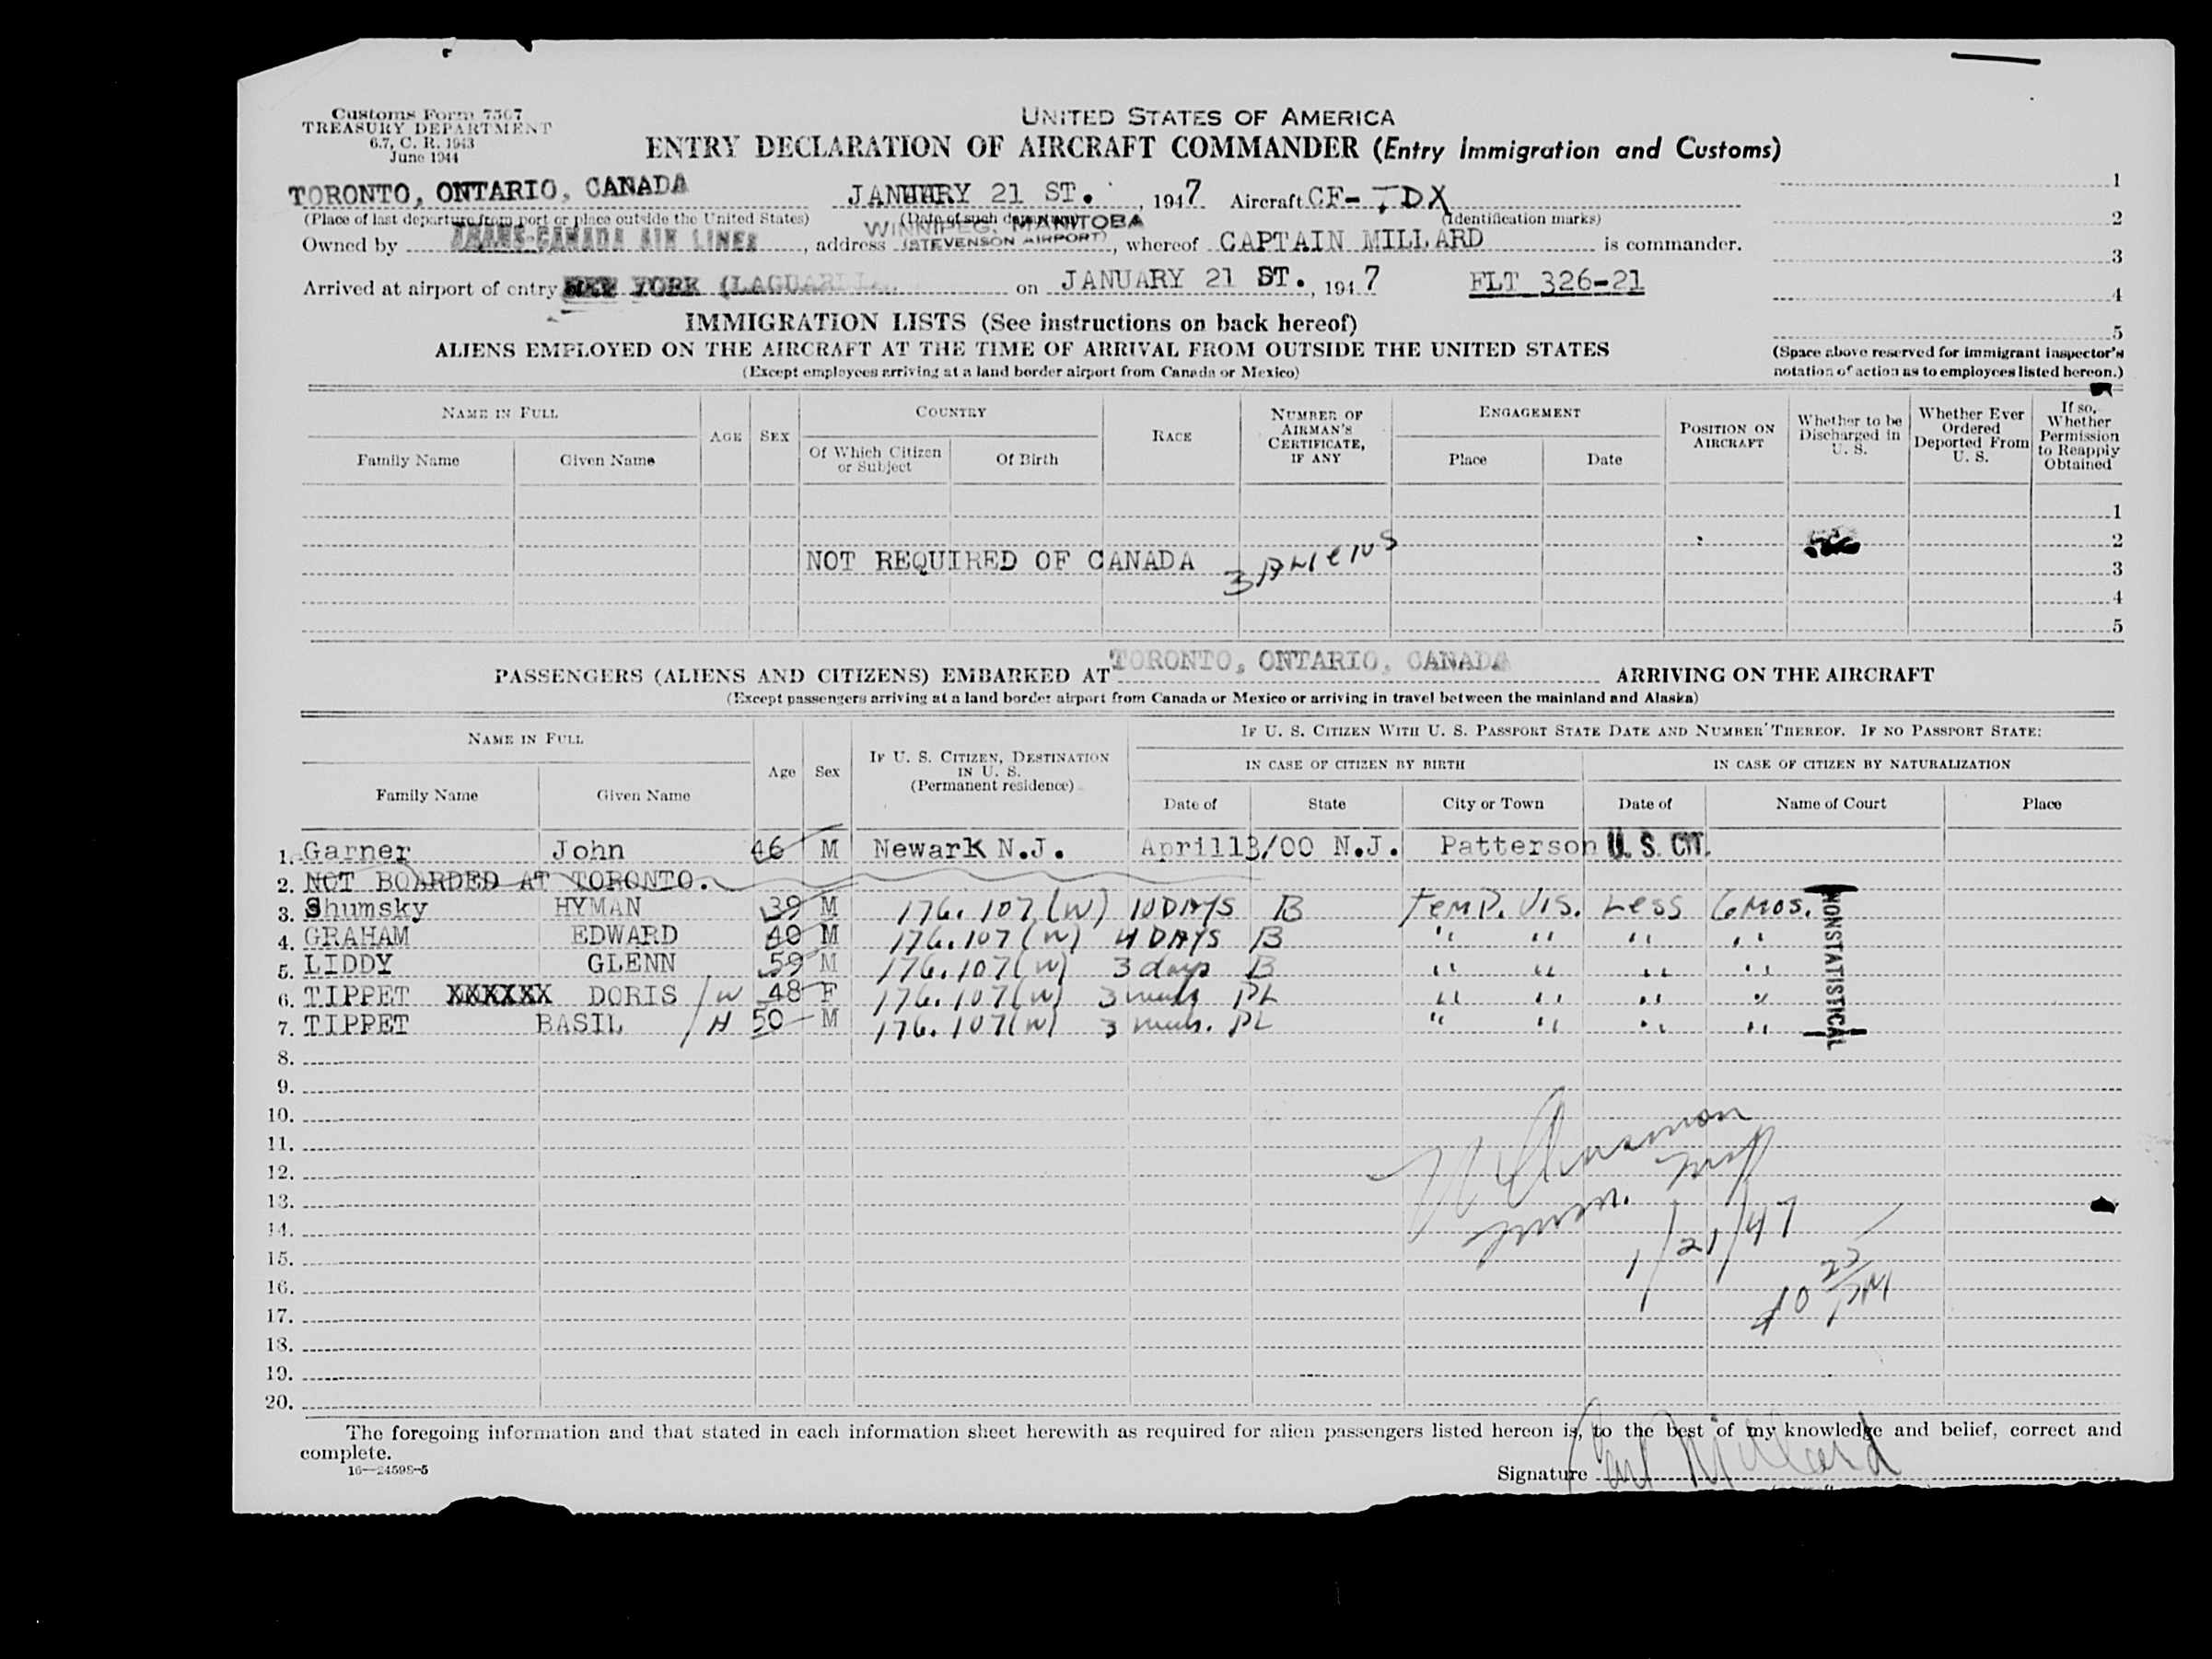 Customs Form 7507
TREASURY DEPARTMENT
6.7, C. R. 1943
June 1944
UNITED STATES OF AMERICA
ENTRY DECLARATION OF AIRCRAFT COMMANDER (Entry Immigration and Customs)
TORONTO, ONTARIO, CANADA JANUARY 21 ST. , 1947 Aircraft CF-TDX 1
(Place of last departure from port or place outside the United States) (Date of such departure) (Identification marks) 2
WINNIPEG, MANITOBA
Owned by TRANS-CANADA AIR LINES , address (STEVENSON AIRPORT) , whereof CAPTAIN MILLARD is commander. 3
Arrived at airport of entry NEW YORK (LAGUARDIA on JANUARY 21 ST. , 1947 FLT 326-21 4
IMMIGRATION LISTS (See instructions on back hereof) 5
ALIENS EMPLOYED ON THE AIRCRAFT AT THE TIME OF ARRIVAL FROM OUTSIDE THE UNITED STATES
(Except employees arriving at a land border airport from Canada or Mexico)
(Space above reserved for immigrant inspector's
notation of action as to employees listed hereon.)
NAME IN FULL AGE SEX COUNTRY RACE NUMBER OF AIRMAN'S CERTIFICATE, IF ANY ENGAGEMENT POSITION ON AIRCRAFT Whether to be Discharged in U. S. Whether Ever Ordered Deported From U. S. If so, Whether Permission to Reapply Obtained
Family Name Given Name Of Which Citizen or Subject Of Birth Place Date
1
2
NOT REQUIRED OF CANADA 3 Aliens 3
4
5
PASSENGERS (ALIENS AND CITIZENS) EMBARKED AT TORONTO, ONTARIO, CANADA ARRIVING ON THE AIRCRAFT
(Except passengers arriving at a land border airport from Canada or Mexico or arriving in travel between the mainland and Alaska)
NAME IN FULL Age Sex IF U. S. CITIZEN, DESTINATION IN U. S. (Permanent residence) IF U. S. CITIZEN WITH U. S. PASSPORT STATE DATE AND NUMBER THEREOF. IF NO PASSPORT STATE:
IN CASE OF CITIZEN BY BIRTH IN CASE OF CITIZEN BY NATURALIZATION
Family Name Given Name Date of State City or Town Date of Name of Court Place
1. Garner John 46 M Newark N.J. April13/00 N.J. Patterson U. S. CIT.
2. NOT BOARDED AT TORONTO.
3. Shumsky HYMAN 39 M 176.107(W) 10 DAYS B TEMP. VIS. Less 6 Mos.
4. GRAHAM EDWARD 40 M 176.107(W) 4 DAYS B " " " "
5. LIDDY GLENN 59 M 176.107(W) 3 days B " " " "
6. TIPPET XXXXXX DORIS /W 48 F 176.107(W) 3 PL " " " "
7. TIPPET BASIL /H 50 M 176.107(W) 3 PL " " " "
NONSTATISTICAL
8.
9.
10.
11.
12.
13.
14.
1/21/47
15.
16.
10 25 PM
17.
18.
19.
20.
The foregoing information and that stated in each information sheet herewith as required for alien passengers listed hereon is, to the best of my knowledge and belief, correct and
complete.
16—24598-5
Signature Millard